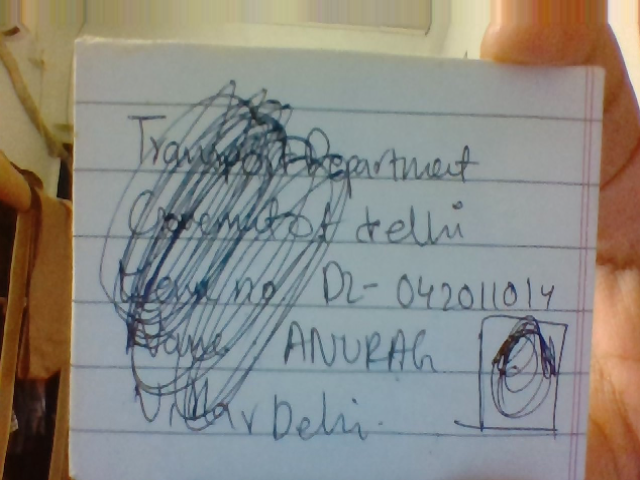 Transport Department
Goverment of delhi
no DL-042011014
Name ANURAG
Delhi.